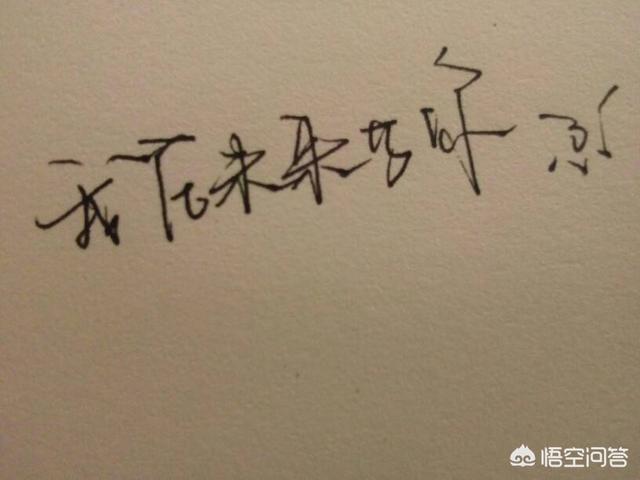 我在未来等你
悟空问答